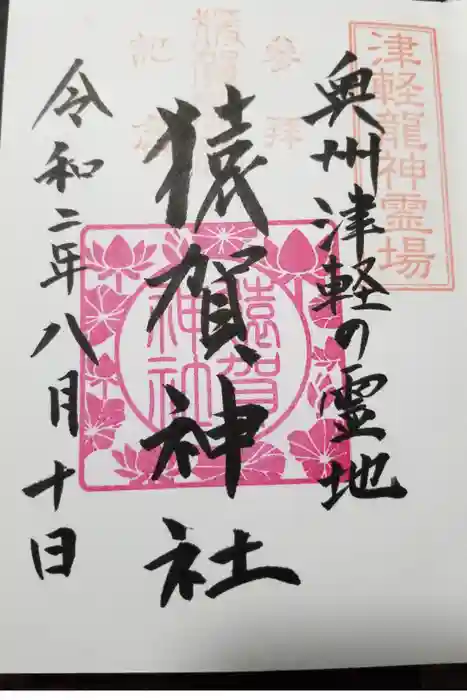 津軽龍神霊場
奥州津軽の霊地
猿賀神社
猿賀
神社
令和二年八月十日